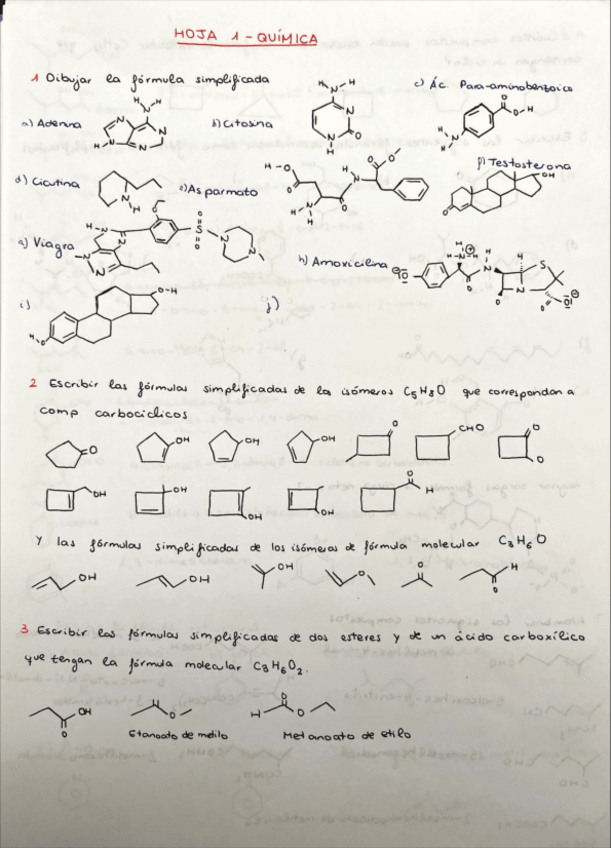 HOJA 1 - QUÍMICA
1 Dibujar la fórmula simplificada
a) Adenina b) Citosina c) Ác. Para-aminobenzoico
d) Cicutina e) Aspartato f) Testosterona
g) Viagra h) Amoxicilina
i) j)
2 Escribir las fórmulas simplificadas de los isómeros C5H8O que correspondan a
comp carbocíclicos
Y las fórmulas simplificadas de los isómeros de fórmula molecular C3H6O
3 Escribir las fórmulas simplificadas de dos esteres y de un ácido carboxílico
que tengan la fórmula molecular C3H6O2.
Etanoato de metilo Metanoato de etilo